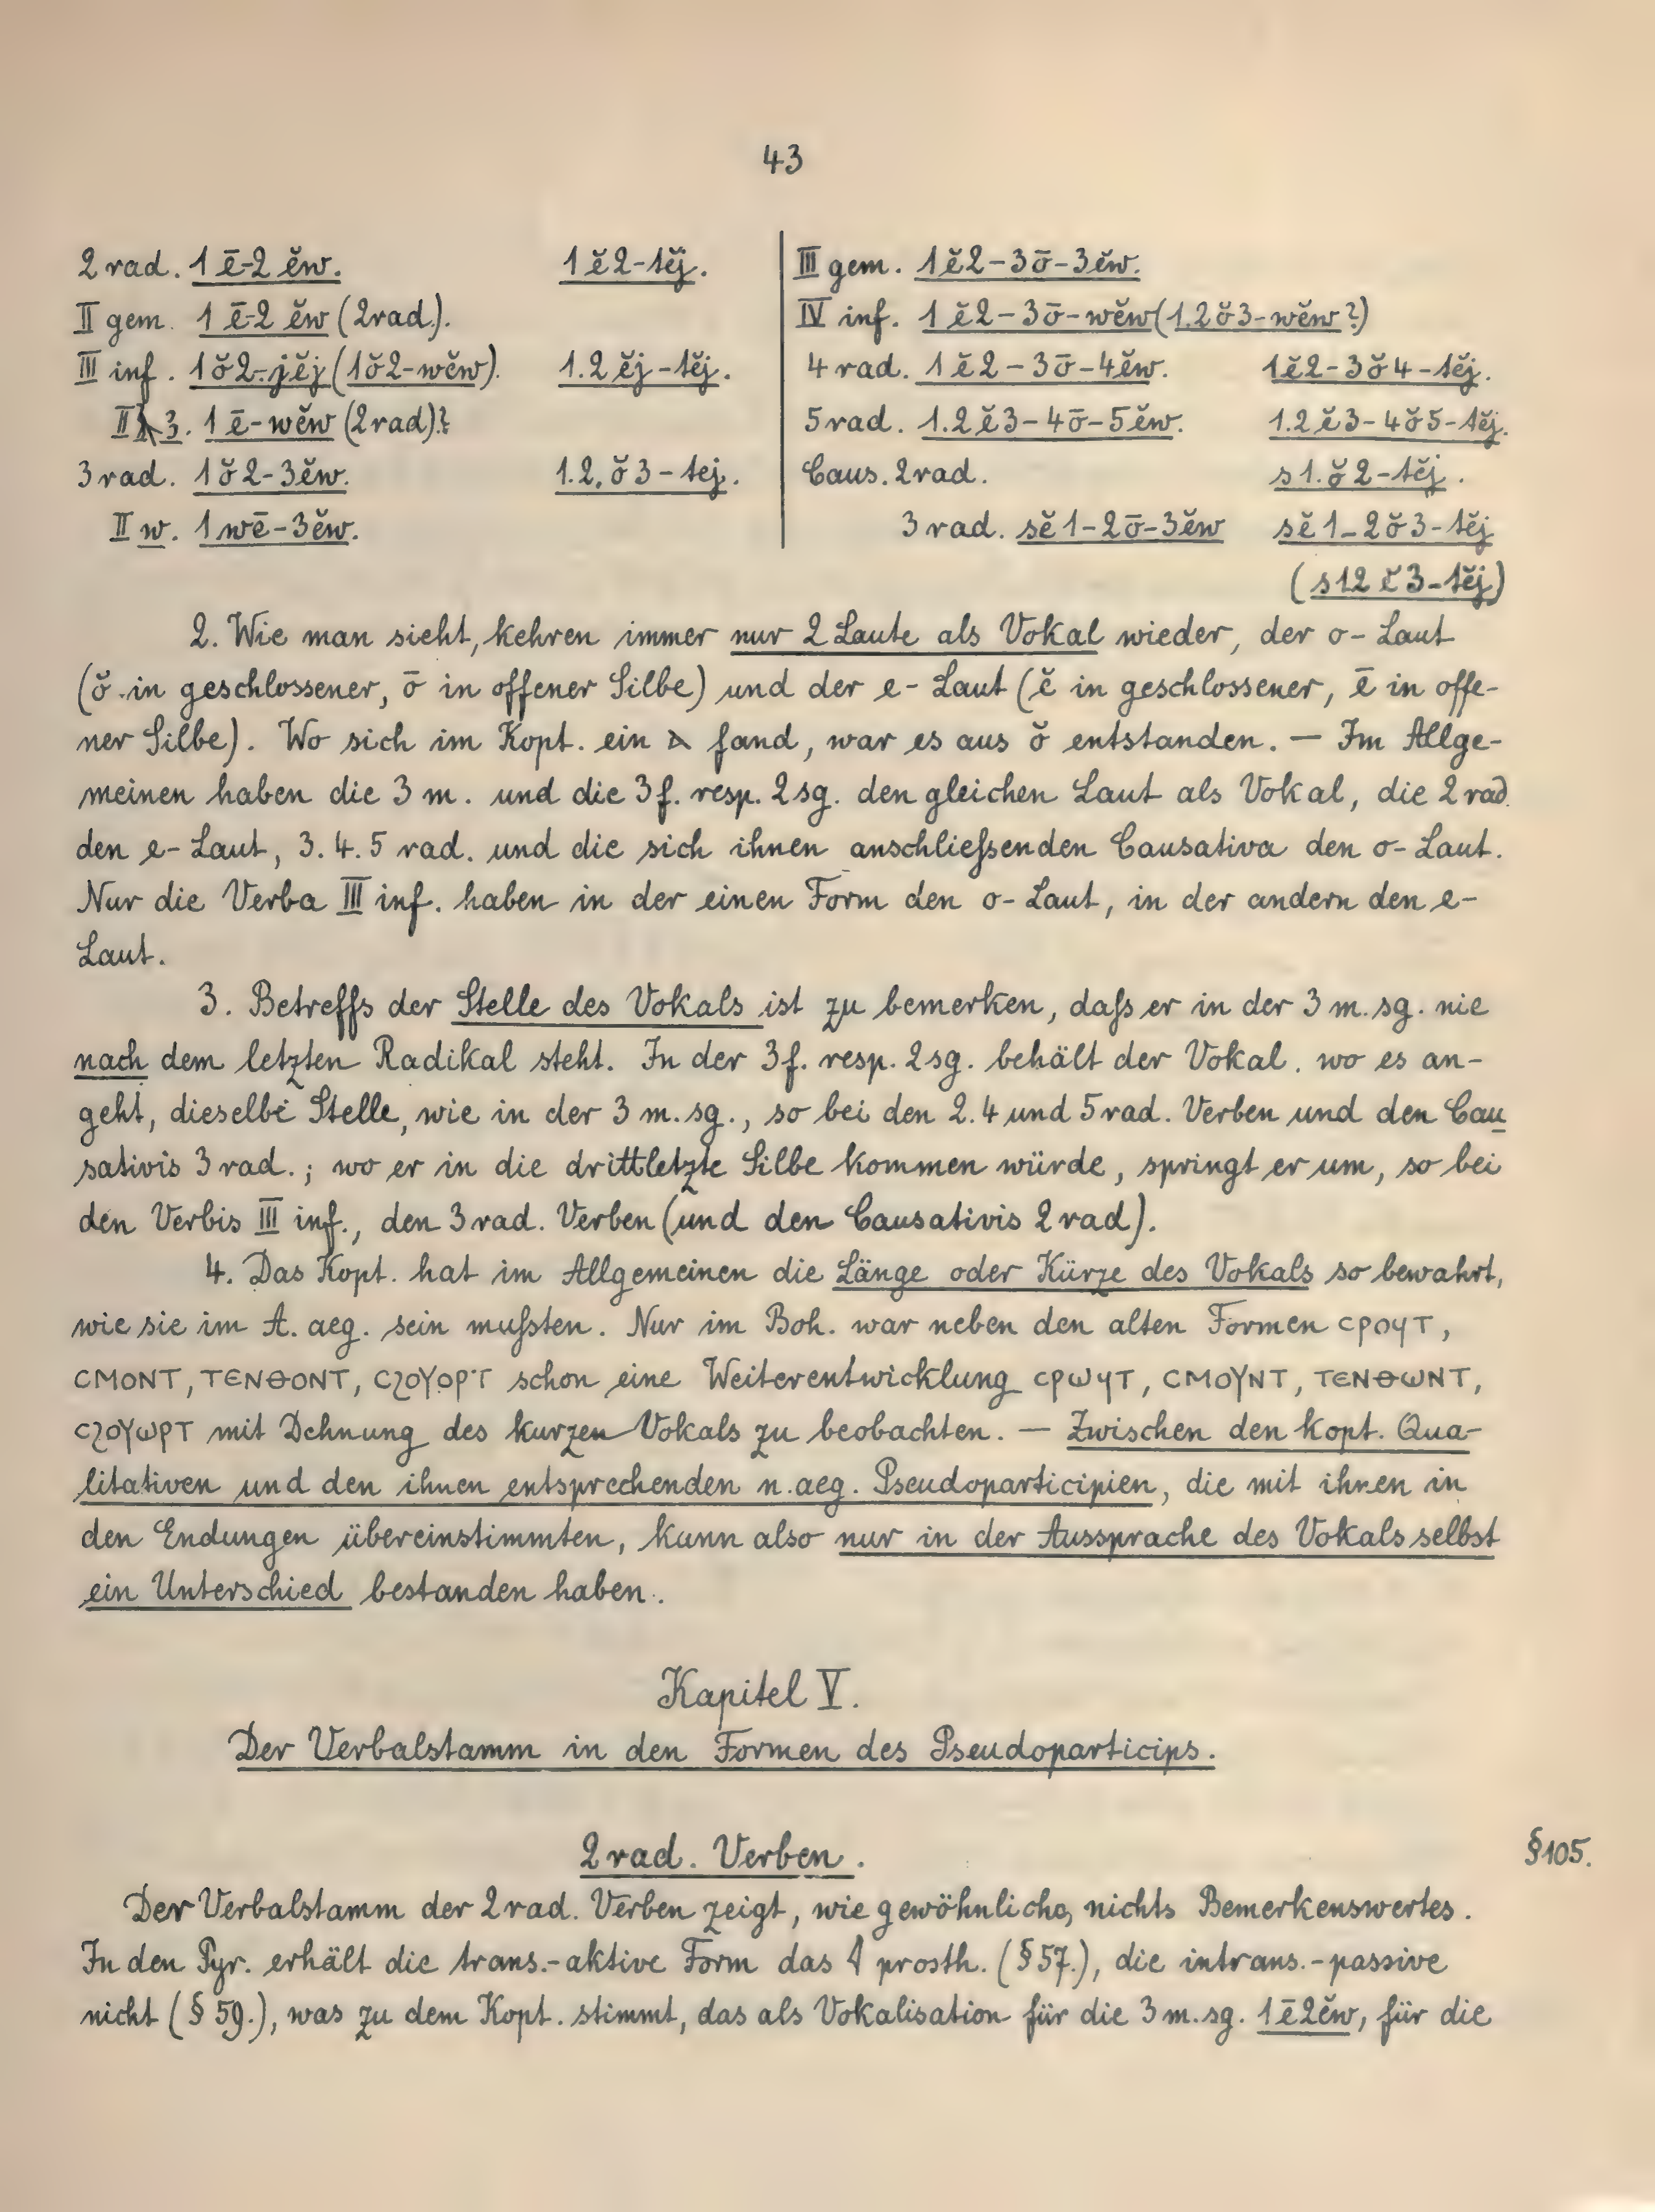 43
2 rad. 1 ē-2 ĕw. 1 ĕ2-tĕj.
II gem. 1 ē-2 ĕw (2rad.).
III inf. 1ŏ2-jĕj (1ŏ2-wĕw). 1.2 ĕj-tĕj.
3. 1 ē-wĕw (2rad)?
3 rad. 1ŏ2-3ĕw. 1.2.ŏ3-tej.
II w. 1wē-3ĕw.
III gem. 1ĕ2-3ō-3ĕw.
IV inf. 1ĕ2-3ō-wĕw (1.2ŏ3-wĕw?)
4 rad. 1ĕ2-3ō-4ĕw. 1ĕ2-3ŏ4-tĕj.
5 rad. 1.2ĕ3-4ō-5ĕw. 1.2ĕ3-4ŏ5-tĕj.
Caus. 2rad. s1.ŏ2-tĕj.
3 rad. sĕ1-2ō-3ĕw sĕ1-2ŏ3-tĕj
(s12ĕ3-tĕj)
2. Wie man sieht, kehren immer nur 2 Laute als Vokal wieder, der o-Laut
(ŏ in geschlossener, ō in offener Silbe) und der e-Laut (ĕ in geschlossener, ē in offe-
ner Silbe). Wo sich im Kopt. ein ⲁ fand, war es aus ŏ entstanden. — Im Allge-
meinen haben die 3 m. und die 3f. resp. 2sg. den gleichen Laut als Vokal, die 2 rad.
den e-Laut, 3. 4. 5 rad. und die sich ihnen anschließenden Causativa den o-Laut.
Nur die Verba III inf. haben in der einen Form den o-Laut, in der andern den e-
Laut.
3. Betreffs der Stelle des Vokals ist zu bemerken, daß er in der 3 m. sg. nie
nach dem letzten Radikal steht. In der 3f. resp. 2sg. behält der Vokal, wo es an-
geht, dieselbe Stelle, wie in der 3 m. sg., so bei den 2. 4 und 5 rad. Verben und den Cau
sativis 3 rad.; wo er in die drittletzte Silbe kommen würde, springt er um, so bei
den Verbis III inf., den 3 rad. Verben (und den Causativis 2 rad).
4. Das Kopt. hat im Allgemeinen die Länge oder Kürze des Vokals so bewahrt,
wie sie im A. aeg. sein mußten. Nur im Boh. war neben den alten Formen ⲥⲣⲟϥⲧ,
ⲥⲙⲟⲛⲧ, ⲧⲉⲛⲑⲟⲛⲧ, ⲥϩⲟⲩⲟⲣⲧ schon eine Weiterentwicklung ⲥⲣⲱϥⲧ, ⲥⲙⲟⲩⲛⲧ, ⲧⲉⲛⲑⲱⲛⲧ,
ⲥϩⲟⲩⲱⲣⲧ mit Dehnung des kurzen Vokals zu beobachten. — Zwischen den kopt. Qua-
litativen und den ihnen entsprechenden n. aeg. Pseudoparticipien, die mit ihnen in
den Endungen übereinstimmten, kann also nur in der Aussprache des Vokals selbst
ein Unterschied bestanden haben.
Kapitel V.
Der Verbalstamm in den Formen des Pseudoparticips.
2 rad. Verben.
§105.
Der Verbalstamm der 2 rad. Verben zeigt, wie gewöhnlich, nichts Bemerkenswertes.
In den Pyr. erhält die trans.-aktive Form das 𓇋 prosth. (§ 57.), die intrans.-passive
nicht (§ 59.), was zu dem Kopt. stimmt, das als Vokalisation für die 3 m. sg. 1ē2ĕw, für die